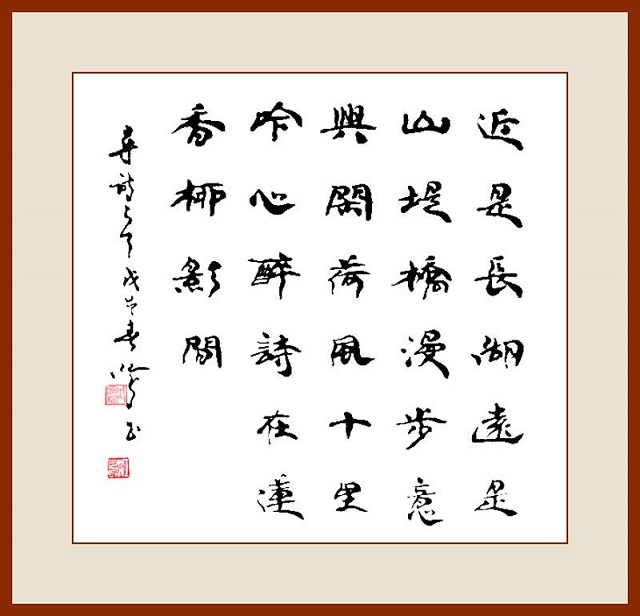 近是長湖遠是
山堤橋漫步意
興閑荷風十里
吟心醉詩在蓮
香柳影間
尋詩之 春